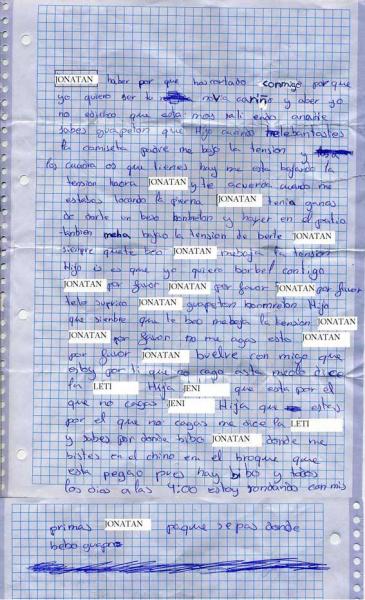 JONATAN haber por que has cortado conmigo porque
yo quiero ser tu nova cariño y aber yo
no e dicho que esta mos sali endo anadie
sabes guapeton que Hijo cuando telebantastes
la camiseta pufre me bajo la tension y
los cuadra os que tienes hay me esta bajando la
tension haora JONATAN y te acuerda cuando me
estabas tocando la pierna JONATAN tenia ganas
de darte un beso bonbeton y hayer en el patio
tanbien meha bajao la tension de berte JONATAN
siempre quete beo JONATAN mebaja la tension
Hijo is es que yo quiero borber contigo
JONATAN por favor JONATAN por favor JONATAN por favor
telo suprico JONATAN guapeton bonmreton Hijo
que sienbre que te beo mebaja la tension JONATAN
JONATAN por favor no me agas esto JONATAN
por favor JONATAN buelve con migo que
estoy por ti que no cago aste melo dice
la LETI Hija JENI que esta por el
que no cagas JENI Hija que estas
por el que no cagas me dice la LETI
y sabes por donde bibo JONATAN donde me
bistes en el chino en el broque que
esta pegao pues hay bibo y todos
los dias a las 9:00 estoy rondando con mis
primas JONATAN paque sepas donde
bebo guapo